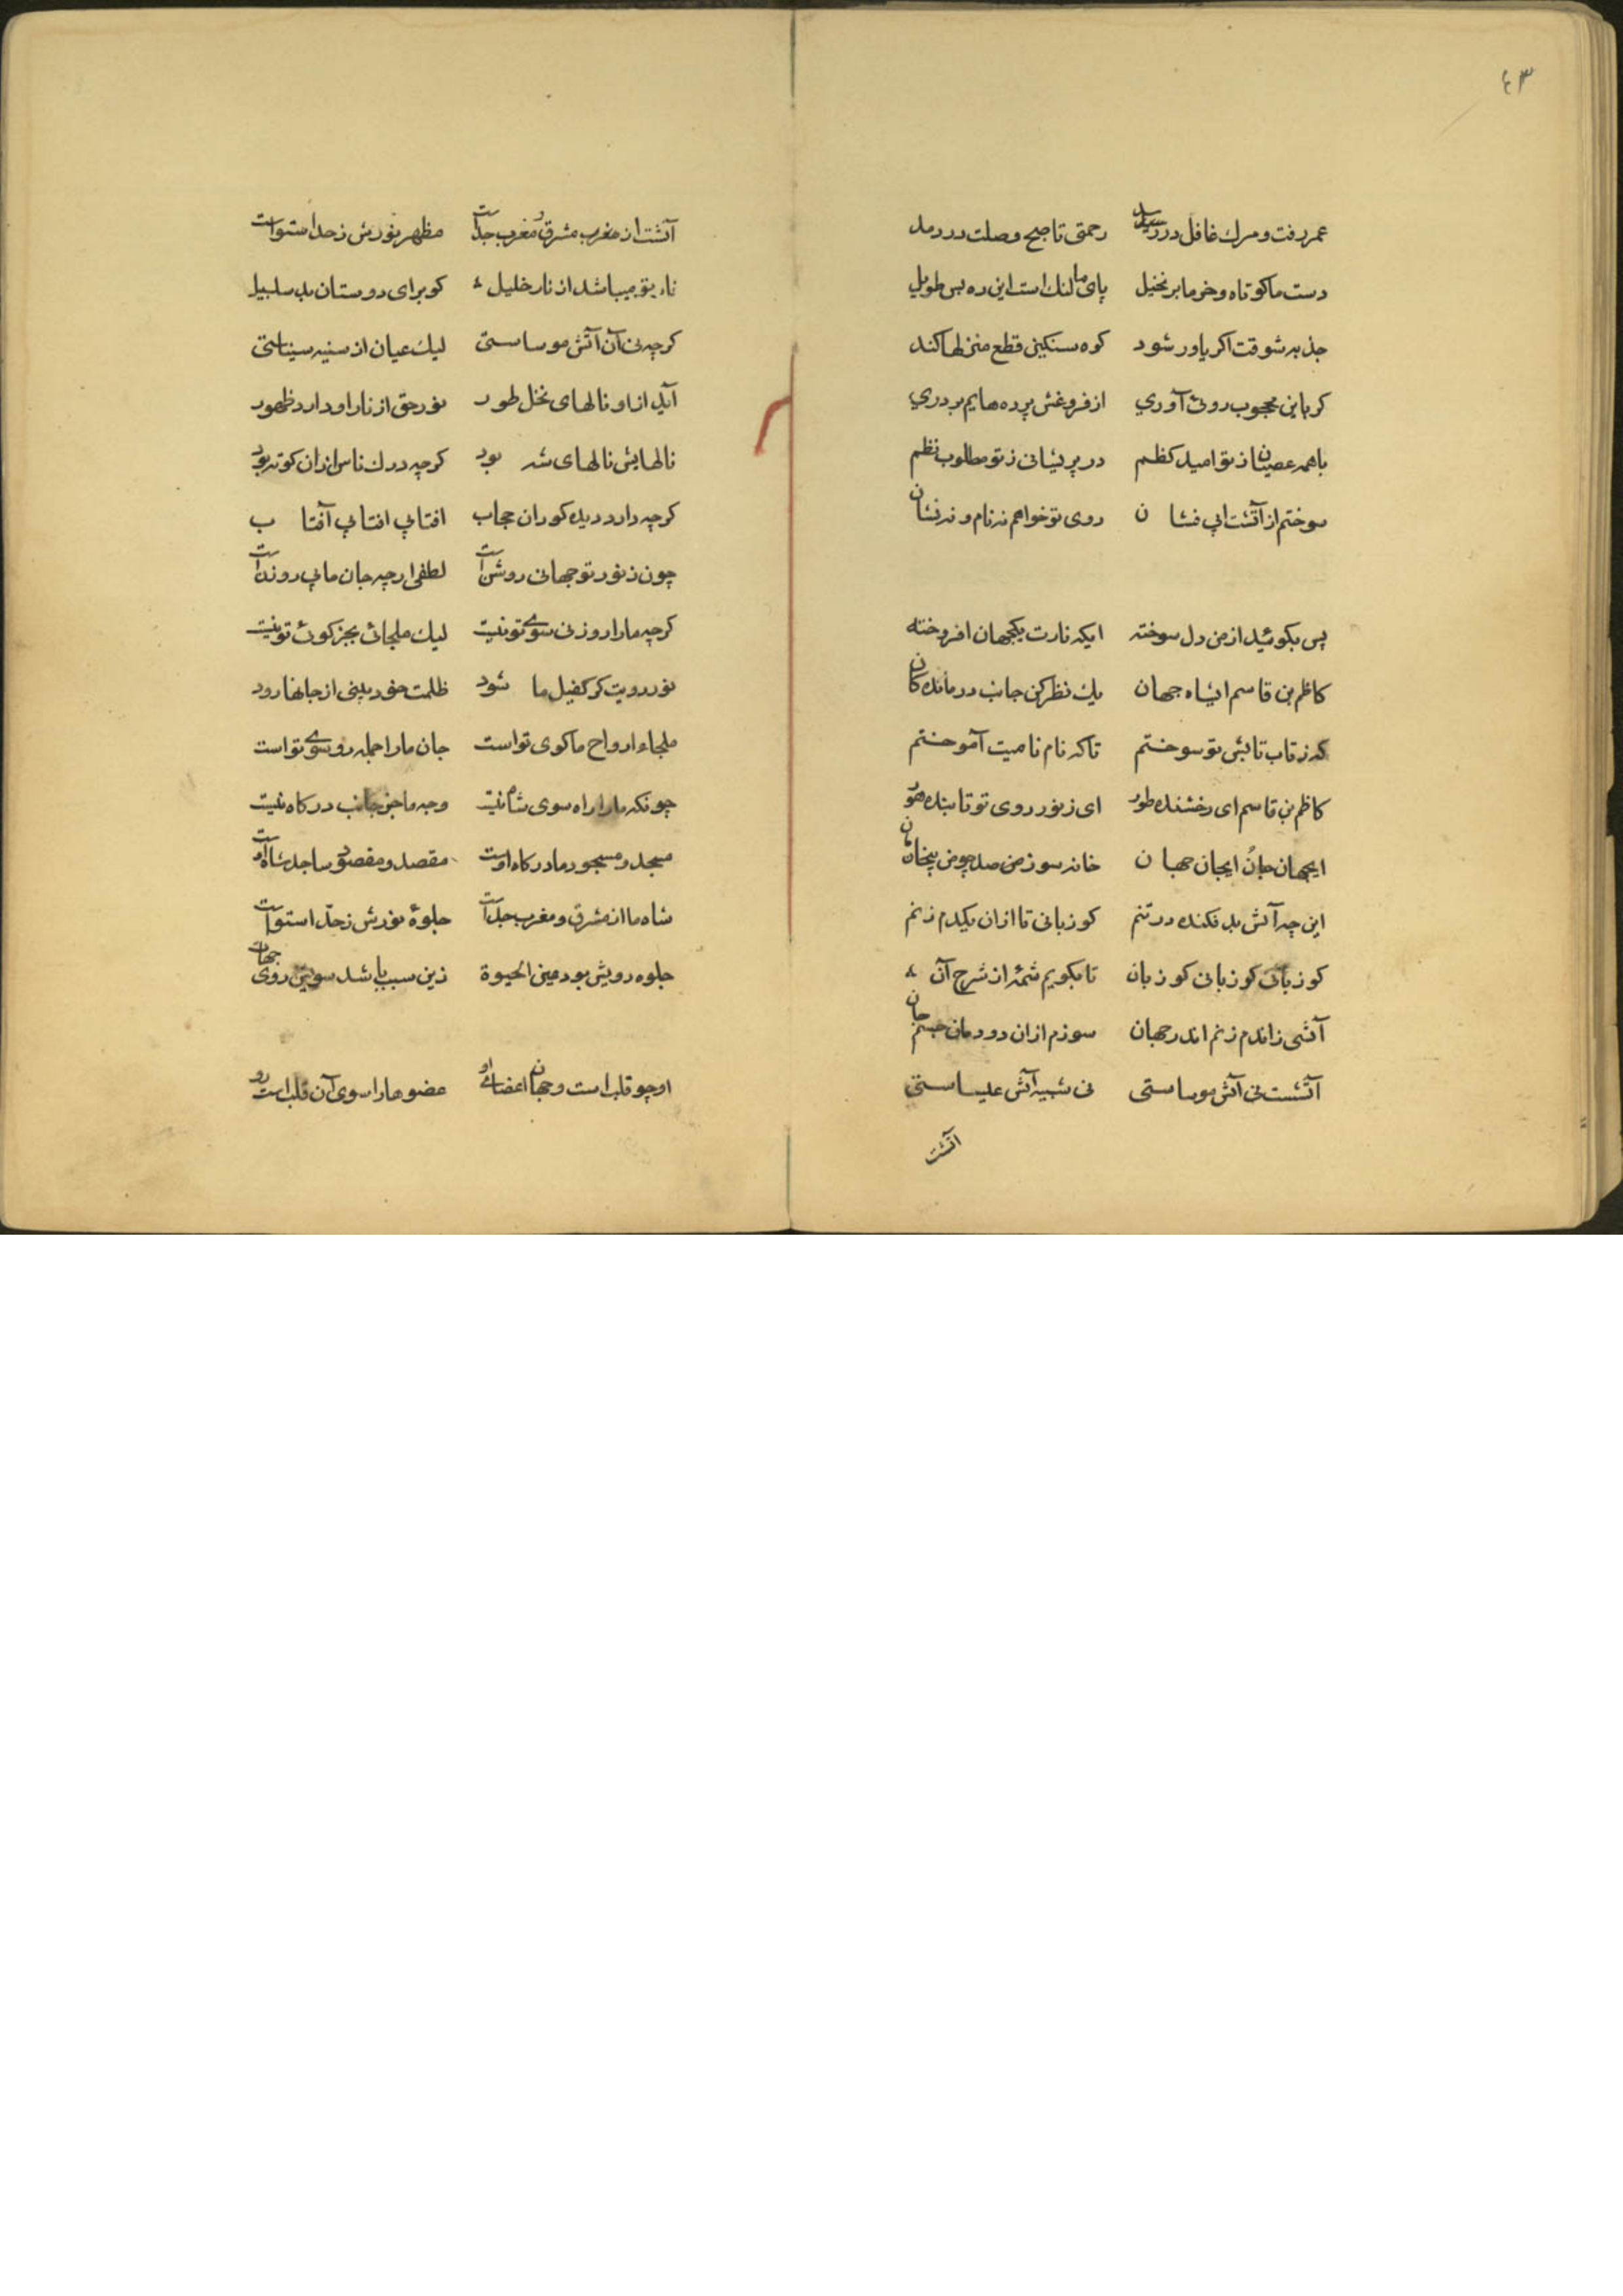 ٤٣
عمر رفت و مرك غافل در رسید رحمتی تا صبح وصلت در دمد
دست ما كوتاه و خرما بر نخیل پای ما لنك است این ره بس طویل
جذبه شوقت اكر یاور شود كوه سنكین قطع منزلها كند
كر باین محجوب روئی آوری از فروغش پرده هایم بر دری
با همه عصیان ز تو امید كظم در پریشانی ز تو مطلوب نظم
سوختم از آتشت ای بی نشان روی تو خواهم نه نام و نه نشان
پس بكوئید از من دل سوخته ایكه نارت یكجهان افروخته
كاظم بن قاسم ایشاه جهان یك نظر كن جانب درماندكان
كه ز تاب تابش تو سوختم تا كه نام نامیت آموختم
كاظم بن قاسم ای رخشنده طور ای ز نور روی تو تابنده هور
ایجهان جان ایجان جهان خانه سوز من صد چو من بیخانمان
این چه آتش بد فكنده در تنم كو زبانی تا از ان یكدم زنم
كو زبانی كو زبانی كو زبان تا بكویم شمۀ از شرح آن
آتشی زاندم زنم اندر جهان سوزم از ان دودمان جسم جان
آتشت نی آتش موساستی نی شبیه آتش عیساستی
آتشت
آتشت از مغرب مشرق و مغرب جداست مظهر نورش ز حد استواست
نار تو میباشد از نار خلیل كو برای دوستان بد سلسبیل
كرچه نی آن آتش موساستی لیك عیان از سنیه سیناستی
آید از او نالهای نخل طور نور حق از نار او دارد ظهور
نالهایش نالهای شه بود كرچه درك ناس از ان كوته بود
كرچه دارد دیده كوران حجاب افتابی افتابی آفتاب
چون ز نور تو جهانی روشن است لطفی ارچه جان ما بی روزن است
كرچه ما را روزنی سوی تو نیست لیك ملجائی بجز كوی تو نیست
نور رویت كر كفیل ما شود ظلمت خود بینی از جانها رود
ملجاء ارواح ما كوی تو است جان ما را جمله رو سوی تو است
چونكه ما را راه سوی شاه نیست وجه ما جز جانب دركاه نیست
مسجد و مسجود ما دركاه اوست مقصد و مقصود ساجد شاه اوست
شاه ما از مشرق و مغرب جداست جلوۀ نورش ز حدّ استواست
جلوه رویش بود عین الحیوة زین سبب باشد سویش روی جهات
او چو قلب است و جهان اعضای او عضوها را سوی آن قلب است رو